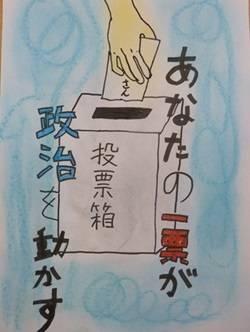 あなたの一票が
政治を動かす
さん
投票箱